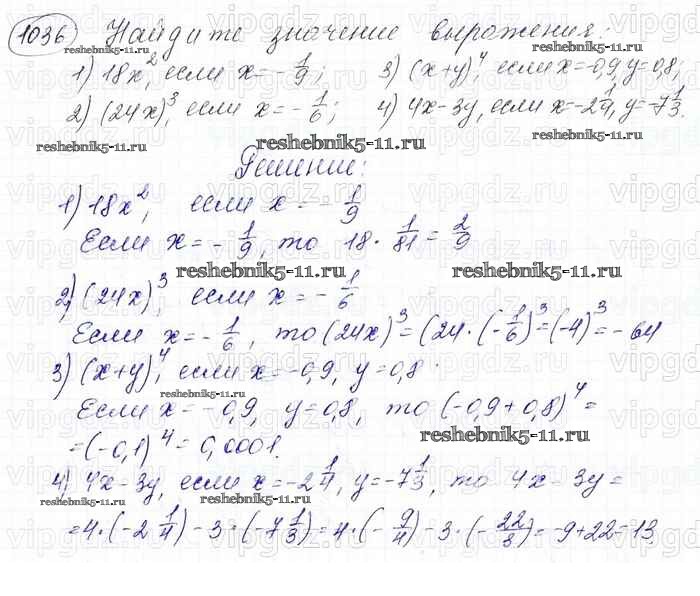 1036 Найдите значение выражения:
1) 18x², если x = -1/9; 3) (x+y)⁴, если x=-0,9, y=0,8;
2) (24x)³, если x = -1/6; 4) 4x-3y, если x=-2 1/4, y=-7 1/3.
reshebnik5-11.ru
reshebnik5-11.ru
reshebnik5-11.ru
reshebnik5-11.ru
Решение:
1) 18x², если x = -1/9
Если x = -1/9, то 18 · 1/81 = 2/9
reshebnik5-11.ru
reshebnik5-11.ru
2) (24x)³, если x = -1/6
Если x = -1/6, то (24x)³ = (24·(-1/6)³ = (-4)³ = -64
3) (x+y)⁴, если x=-0,9, y=0,8.
reshebnik5-11.ru
Если x = -0,9, y=0,8, то (-0,9+0,8)⁴ =
= (-0,1)⁴ = 0,0001.
reshebnik5-11.ru
4) 4x-3y, если x=-2 1/4, y=-7 1/3, то 4x-3y =
reshebnik5-11.ru
reshebnik5-11.ru
= 4·(-2 1/4) - 3·(-7 1/3) = 4·(-9/4) - 3·(-22/3) = -9+22 = 13